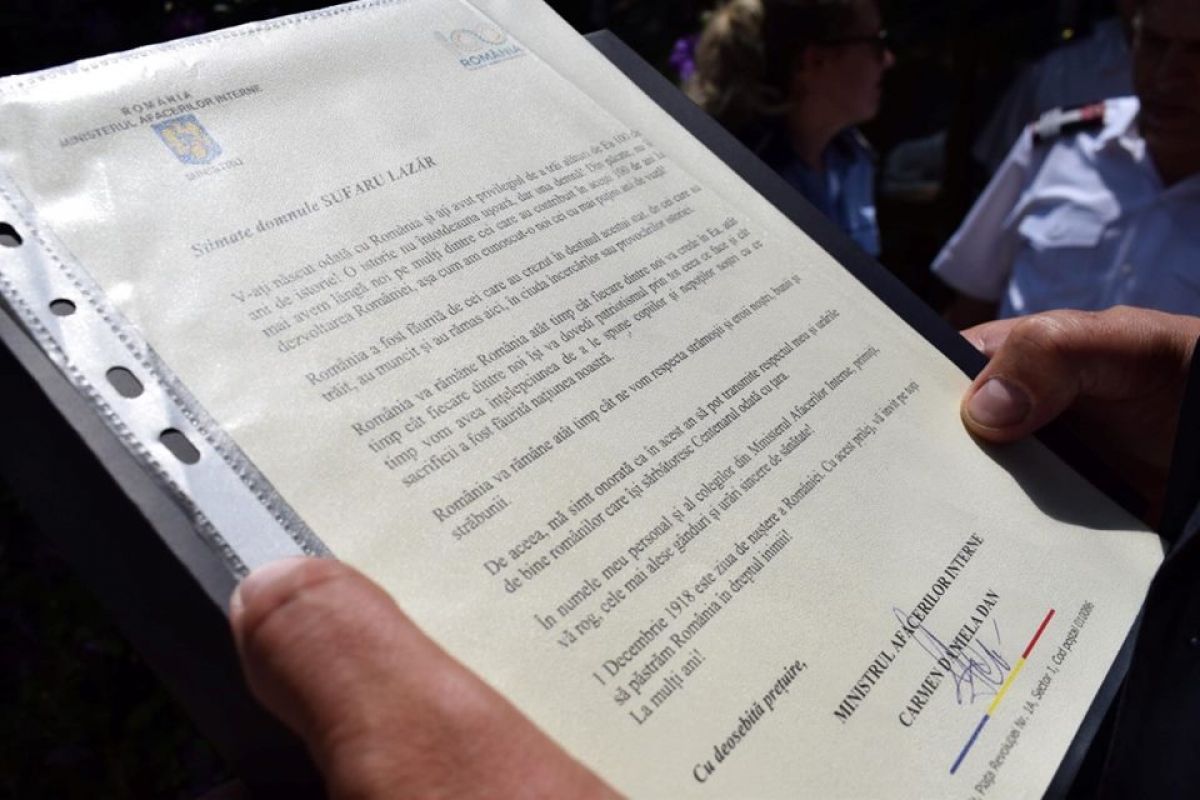 ROMÂNIA
MINISTERUL AFACERILOR INTERNE
MINISTRU
ROMÂNIA
Stimate domnule SUFARU LAZĂR
V-ați născut odată cu România și ați avut privilegiul de a trăi alături de Ea 100 de
ani de istorie! O istorie nu întotdeauna ușoară, dar una demnă! Din păcate, nu îi
mai avem lângă noi pe mulți dintre cei care au contribuit în acești 100 de ani la
dezvoltarea României, așa cum am cunoscut-o noi cei cu mai puțini ani de viață!
România a fost făurită de cei care au crezut în destinul acestui stat, de cei care au
trăit, au muncit și au rămas aici, în ciuda încercărilor sau provocărilor istoriei.
România va rămâne România atât timp cât fiecare dintre noi va crede în Ea, atât
timp cât fiecare dintre noi își va dovedi patriotismul prin tot ceea ce face și cât
timp vom avea înțelepciunea de a le spune copiilor și nepoților noștri cu ce
sacrificii a fost făurită națiunea noastră.
România va rămâne atât timp cât ne vom respecta strămoșii și eroii noștri, bunii și
străbunii.
De aceea, mă simt onorată ca în acest an să pot transmite respectul meu și urările
de bine românilor care își sărbătoresc Centenarul odată cu țara.
În numele meu personal și al colegilor din Ministerul Afacerilor Interne, primiți,
vă rog, cele mai alese gânduri și urări sincere de sănătate!
1 Decembrie 1918 este ziua de naștere a României. Cu acest prilej, vă invit pe toți
să păstrăm România în dreptul inimii!
La mulți ani!
Cu deosebită prețuire,
MINISTRUL AFACERILOR INTERNE
CARMEN DANIELA DAN
Piața Revoluției Nr. 1A, Sector 1, Cod poștal 010086